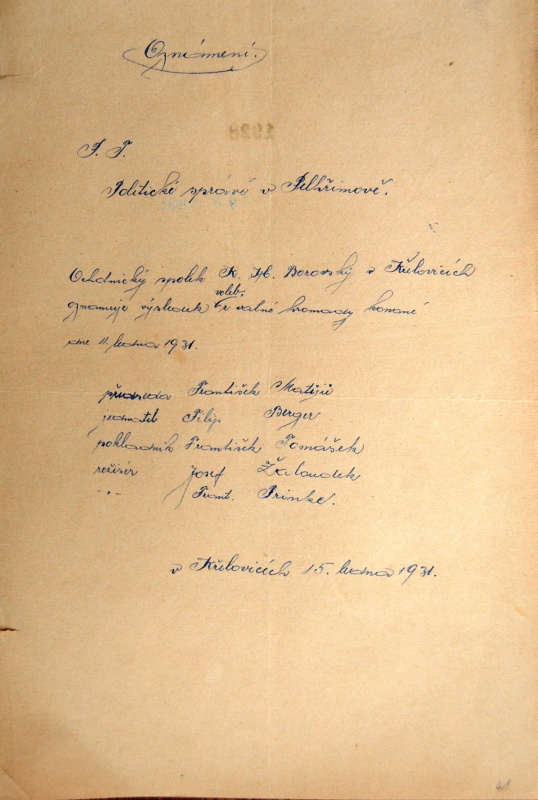 Oznámení.
P. T.
Politické správě v Pelhřimově.
Ochotnický spolek K. H. Borovský v Křelovicích
voleb.
oznamuje výsledek z valné hromady konané
dne 11. ledna 1931.
předseda František Matějů
jednatel Filip Berger
pokladník František Tomášek
režisér Josef Žaloudek
-"- Frant. Prinke.
v Křelovicích 15. ledna 1931.
41